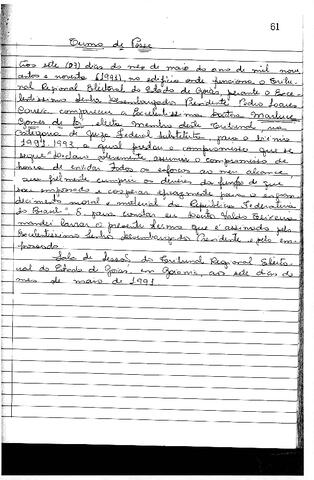 61
Termo de Posse
Aos sete (07) dias do mês de maio do ano de mil nove
centos e noventa (1991) no edifício onde funciona o Tribu
nal Regional Eleitoral do Estado de Goiás, perante o Exce
lentíssimo Senhor Desembargador Presidente Pedro Soares
Correia compareceu a Excelentíssima Doutora Marluce
Gomes de eleita membro deste Tribunal na
categoria de Juiz Federal Substituto para o biênio
1991-1993 a qual prestou o compromisso que se
segue: "Declaro solenemente assumir o compromisso de
honra de envidar todos os esforços ao meu alcance,
para fielmente cumprir os deveres da função de que
sou empossada e cooperar eficazmente para o engran
decimento moral e material da República Federativa
do Brasil" E para constar eu
mandei lavrar o presente termo que é assinado pelo
Excelentíssimo Senhor Desembargador Presidente e pela em
possanda.
Sala de Sessões do Tribunal Regional Eleito
ral do Estado de Goiás em Goiânia, aos sete dias do
mês de maio de 1991